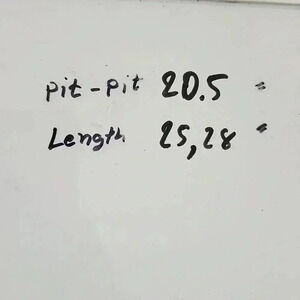 Pit-Pit 20.5 "
Length 25,28 "